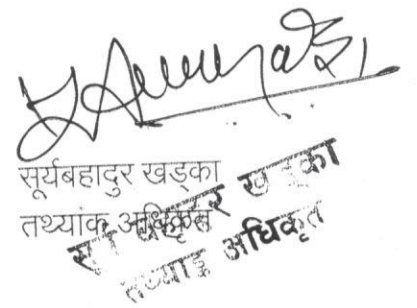 सूर्यबहादुर खड्का
तथ्यांक अधिकृत
खड्का
तथ्याङ्क अधिकृत